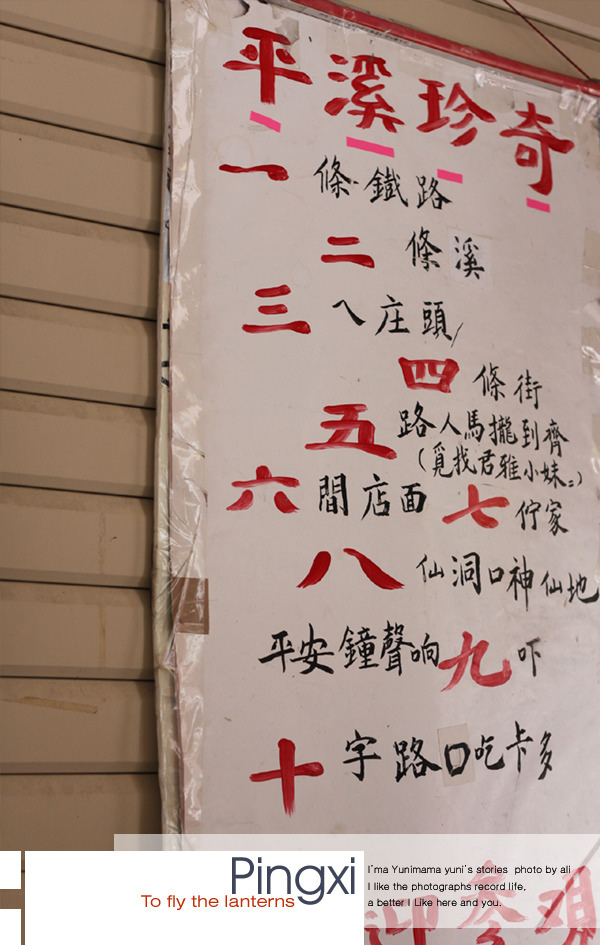 平溪珍奇
一條鐵路
二條溪
三ㄟ庄頭
四條街
五路人馬攏到齊
(覓找君雅小妹=)
六間店面七佇家
八仙洞口神仙地
平安鐘聲响九吓
十字路口吃卡多
Pingxi
To fly the lanterns
I'ma Yunimama yuni's stories photo by ali
I like the photographs record life,
a better I Like here and you.
迎參觀